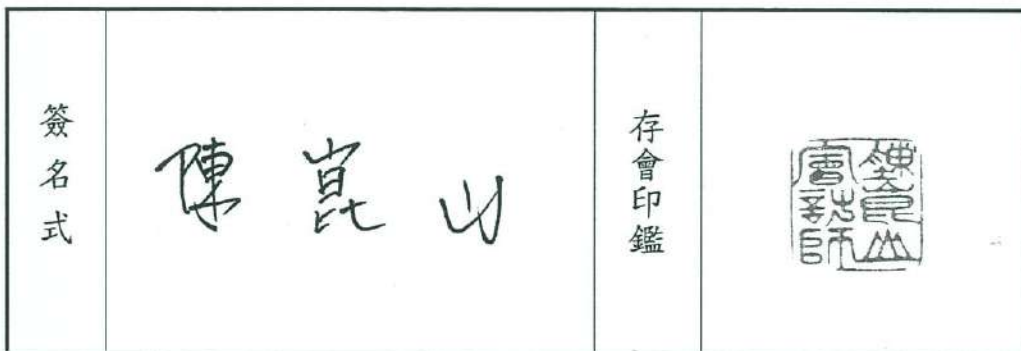 簽名式
陳崑山
存會印鑑
陳崑山
會計師